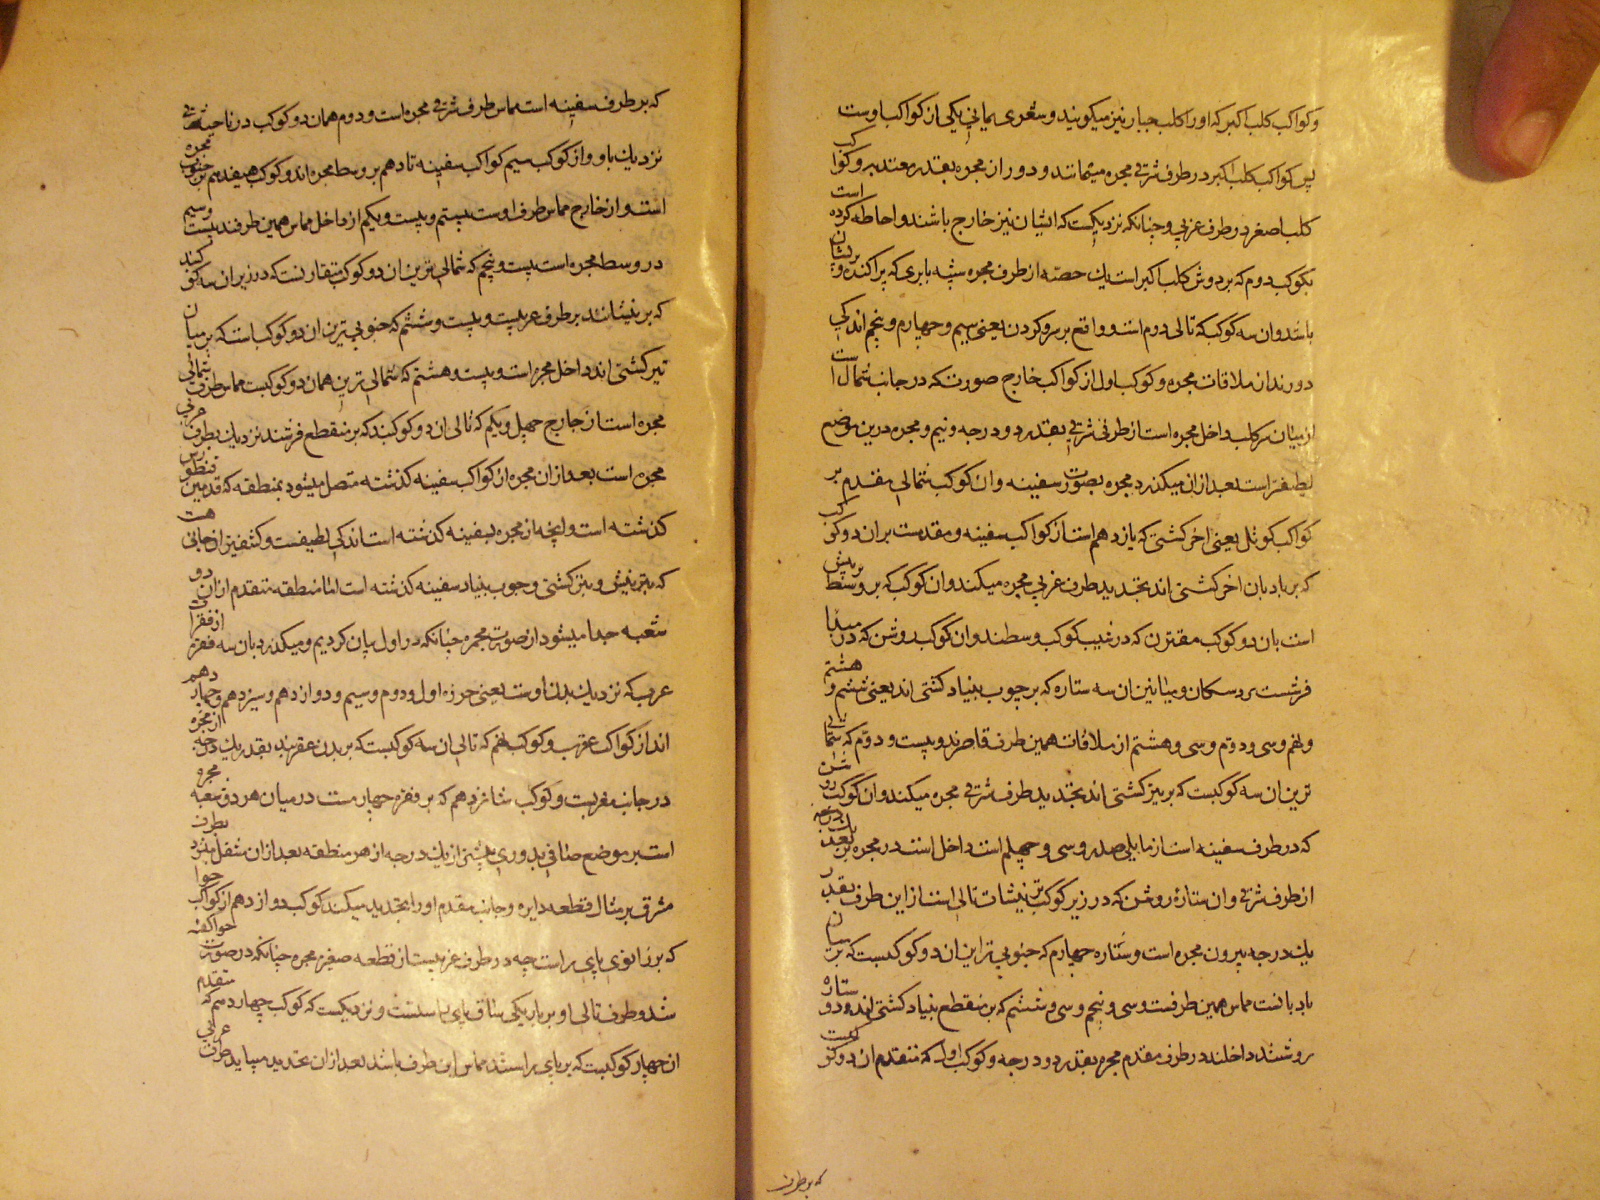 وکواکب کلب اکبر که او را کلب جبار نیز میکویند و شعری یمانی یکی از کواکب اوست
پس کواکب کلب اکبر در طرف شرقی مجره میمانند و دور از مجره بقدر معتد به و کواکب
کلب اصغر در طرف غربی و چنانکه نزدیکست که ایشان نیز خارج باشند و احاطه کرده است
بکوکب دوم که بر دوش کلب اکبر است یک حصه از طرف مجره شبیه بابری که پراکنده و پریشان
باشد وان سه کوکب که تالی دوم است و واقع بر سر و کردن یعنی سیم و چهارم و پنجم اندکی
دورند از ملاقات مجره و کوکب اول از کواکب خارج صورت که در جانب شمال است
از میان سر کلب داخل مجره است از طرف شرقی بقدر دو درجه و نیم و مجره درین موضع
لطیفتر است بعد از ان میکذرد مجره بصورت سفینه وان کوکب شمالی مقدم بر
کواکب کوثل یعنی اخر کشتی که یازدهم است از کواکب سفینه و مقدمست بران دو کوکب
که بر بادبان اخر کشتی اند تحدید طرف غربی مجره میکند وان کوکب که بر وسط پریش
است بان دو کوکب مقترن که در غیب کوکب وسطند وان کوکب روشن که در مبدا
فرشست بر دسکان و میانین ان سه ستاره که بر چوب بنیاد کشتی اند یعنی ششم و هشتم
ونهم و سی و دوم و سی و هشتم از ملاقات همین طرف قاصرند و بیست و دوم که شمالی
ترین ان سه کوکبست که بر میز کشتی اند تحدید طرف شرقی مجره میکند وان کوکب روشن
که در طرف سفینه است از مایلی صدر و سی و چهلم است داخل است در مجره ببعد یکدرجه
از طرف شرقی وان ستاره روشن که در زیر کوکب ترنیشات تالی است از این طرف بقدر
یک درجه بیرون مجره است و ستاره چهارم که جنوبی تر این ان دو کوکبست که بر میان
بادبانست مماس همین طرفست و سی و پنجم و سی و ششم که بر منقطع بنیاد کشتی اند و دو ستاره
روشنند داخلند در طرف مقدم مجره بقدر دو درجه و کوکب اول که متقدم ان دو کوکبست
که بر طرف
که بر طرف سفینه است مماس طرف شرقی مجره است و دوم همان دو کوکب در ناحیه شرقی
نزدیک باو و از کوکب سیم کواکب سفینه تا دهم بر وسط مجره اند و کوکب هیفدهم بر جنوب مجره
است و از خارج مماس طرف اوست بیستم و بیست و یکم از داخل مماس همین طرفند بیست وسیم
در وسط مجره است بیست و پنجم که شمالی ترین ان دو کوکب متقارنست که در زیر ان سه کوکبند
که بر نیشانند بر طرف غربیست و بیست و ششم که جنوبی ترین ان دو کوکب است که بر میان
تیر کشتی اند داخل مجره است و بیست و هشتم که شمالی ترین همان دو کوکبست مماس طرف شمالی
مجره است از خارج چهل و یکم که تالی ان دو کوکبند که بر منقطع فرشند نزدیک بطرف غربی
مجره است بعد از ان مجره از کواکب سفینه کذشته متصل میشود بمنطقه که قدمین قنطورس
کذشته است و انچه از مجره بسفینه کذشته است اندکی لطیفست و کثیفتر از جانبی هست
که بتر نیش و میز کشتی و چوب بنیاد سفینه کذشته است اما منطقه متقدم ازان دو
شعبه جدا میشود از صورت مجره چنانکه در اول بیان کردیم و میکذرد بان سه فقره از فقرات
عقرب که نزدیک بدن اوست یعنی خرزه اول و دوم و سیم و دوازدهم و سیزدهم و چهاردهم
اند از کواکب عقرب و کوکب نهم که تالی ان سه کوکبست که بر بدن عقربند بقدر یک درجه از مجره
در جانب مغربست و کوکب شانزدهم که بر فقره چهارمست در میان هر دو شعبه مجره
است بر موضع صافی بدوری بیشتر از یک درجه از هر منطقه بعد از ان منتقل میشود بطرف
مشرق بر مثال قطعه دایره و جانب مقدم او را تحدید میکند کوکب دوازدهم از کواکب حوا
که بر زانوی پای راست چه در طرف غربیست از قطعه صغیره مجره چنانکه در صورت حوا کفته
شد و طرف تالی او بر باریکی ساق پای راستست و نزدیکست که کوکب چهاردهم که متقدم
ان چهار کوکبست که بر پای راستند مماس این طرف باشد بعد از ان تحدید میباید طرف غربی